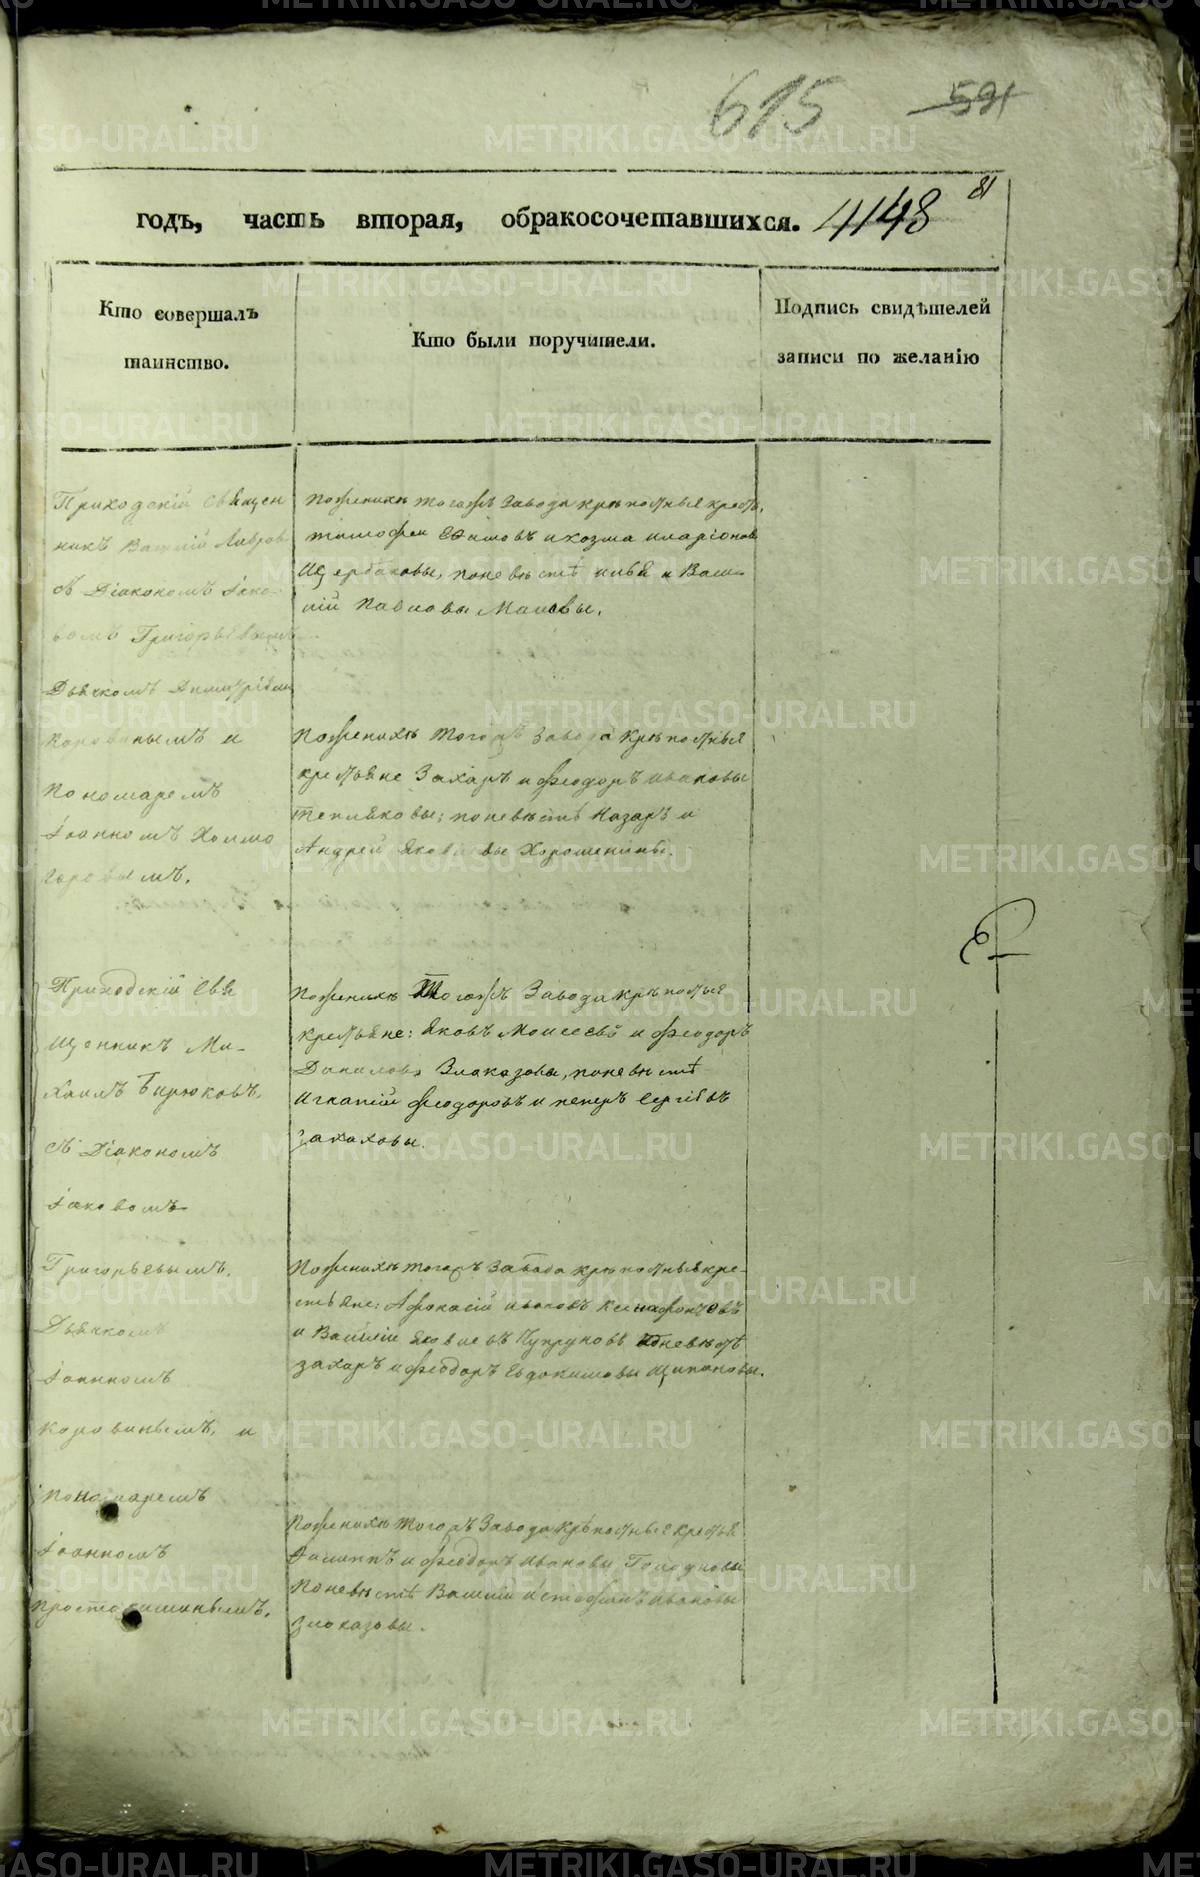 615 591
81
годъ, часть вторая, обракосочетавшихся. 4148
Кто совершалъ
таинство.
Кто были поручители.
Подпись свидѣтелей
записи по желанію
Приходскій Священ
никъ Василій Лавров
съ Діакономъ Іако-
вомъ Григорьевымъ
Дьячкомъ Димитріем
Коровинымъ и
Пономаремъ
Іоанномъ Холмо
горовымъ.
Поженихѣ тогожъ Завода крѣпостныя крест.
тимофеи Ефимовъ и козма иларіонов
Щербаковы, поневѣстѣ илья и Васи-
лій Павловы Маловы.
Поженихѣ тогожъ завода крѣпостныя
крестьяне Захаръ и феодоръ ивановы
тепляковы; поневѣстѣ Назаръ и
Андрей яковлевы Хорошенины.
Приходскій Свя
щенникъ Ми-
хаилъ Бирюковъ,
съ Діакономъ
Іаковомъ
Григорьевымъ,
Дьячкомъ
Іоанномъ
Коровинымъ, и
пономаремъ
Іоанномъ
Простосишинымъ.
Поженихѣ Тогожъ Завода крѣпостыя
крестьяне: яковъ Моисеевъ и феодоръ
Даниловъ Злаказовы, поневѣстѣ
Игнатій феодоровъ и петеръ Сергіевъ
Поженихѣ тогожъ завода крѣпостныя кре-
стьяне: Афонасій ивановъ Ксенофонтовъ
и Василіи яковлевъ Купруновъ поневѣстѣ
захаръ и феодоръ Евдокимовы Щипановы.
Поженихѣ тогожъ Завода крѣпостныя крестья
Филиппъ и феодоръ ивановы Голодновы
поневѣстѣ Василіи и стефанъ ивановы
Злоказовы.
METRIKI.GASO-URAL.RU